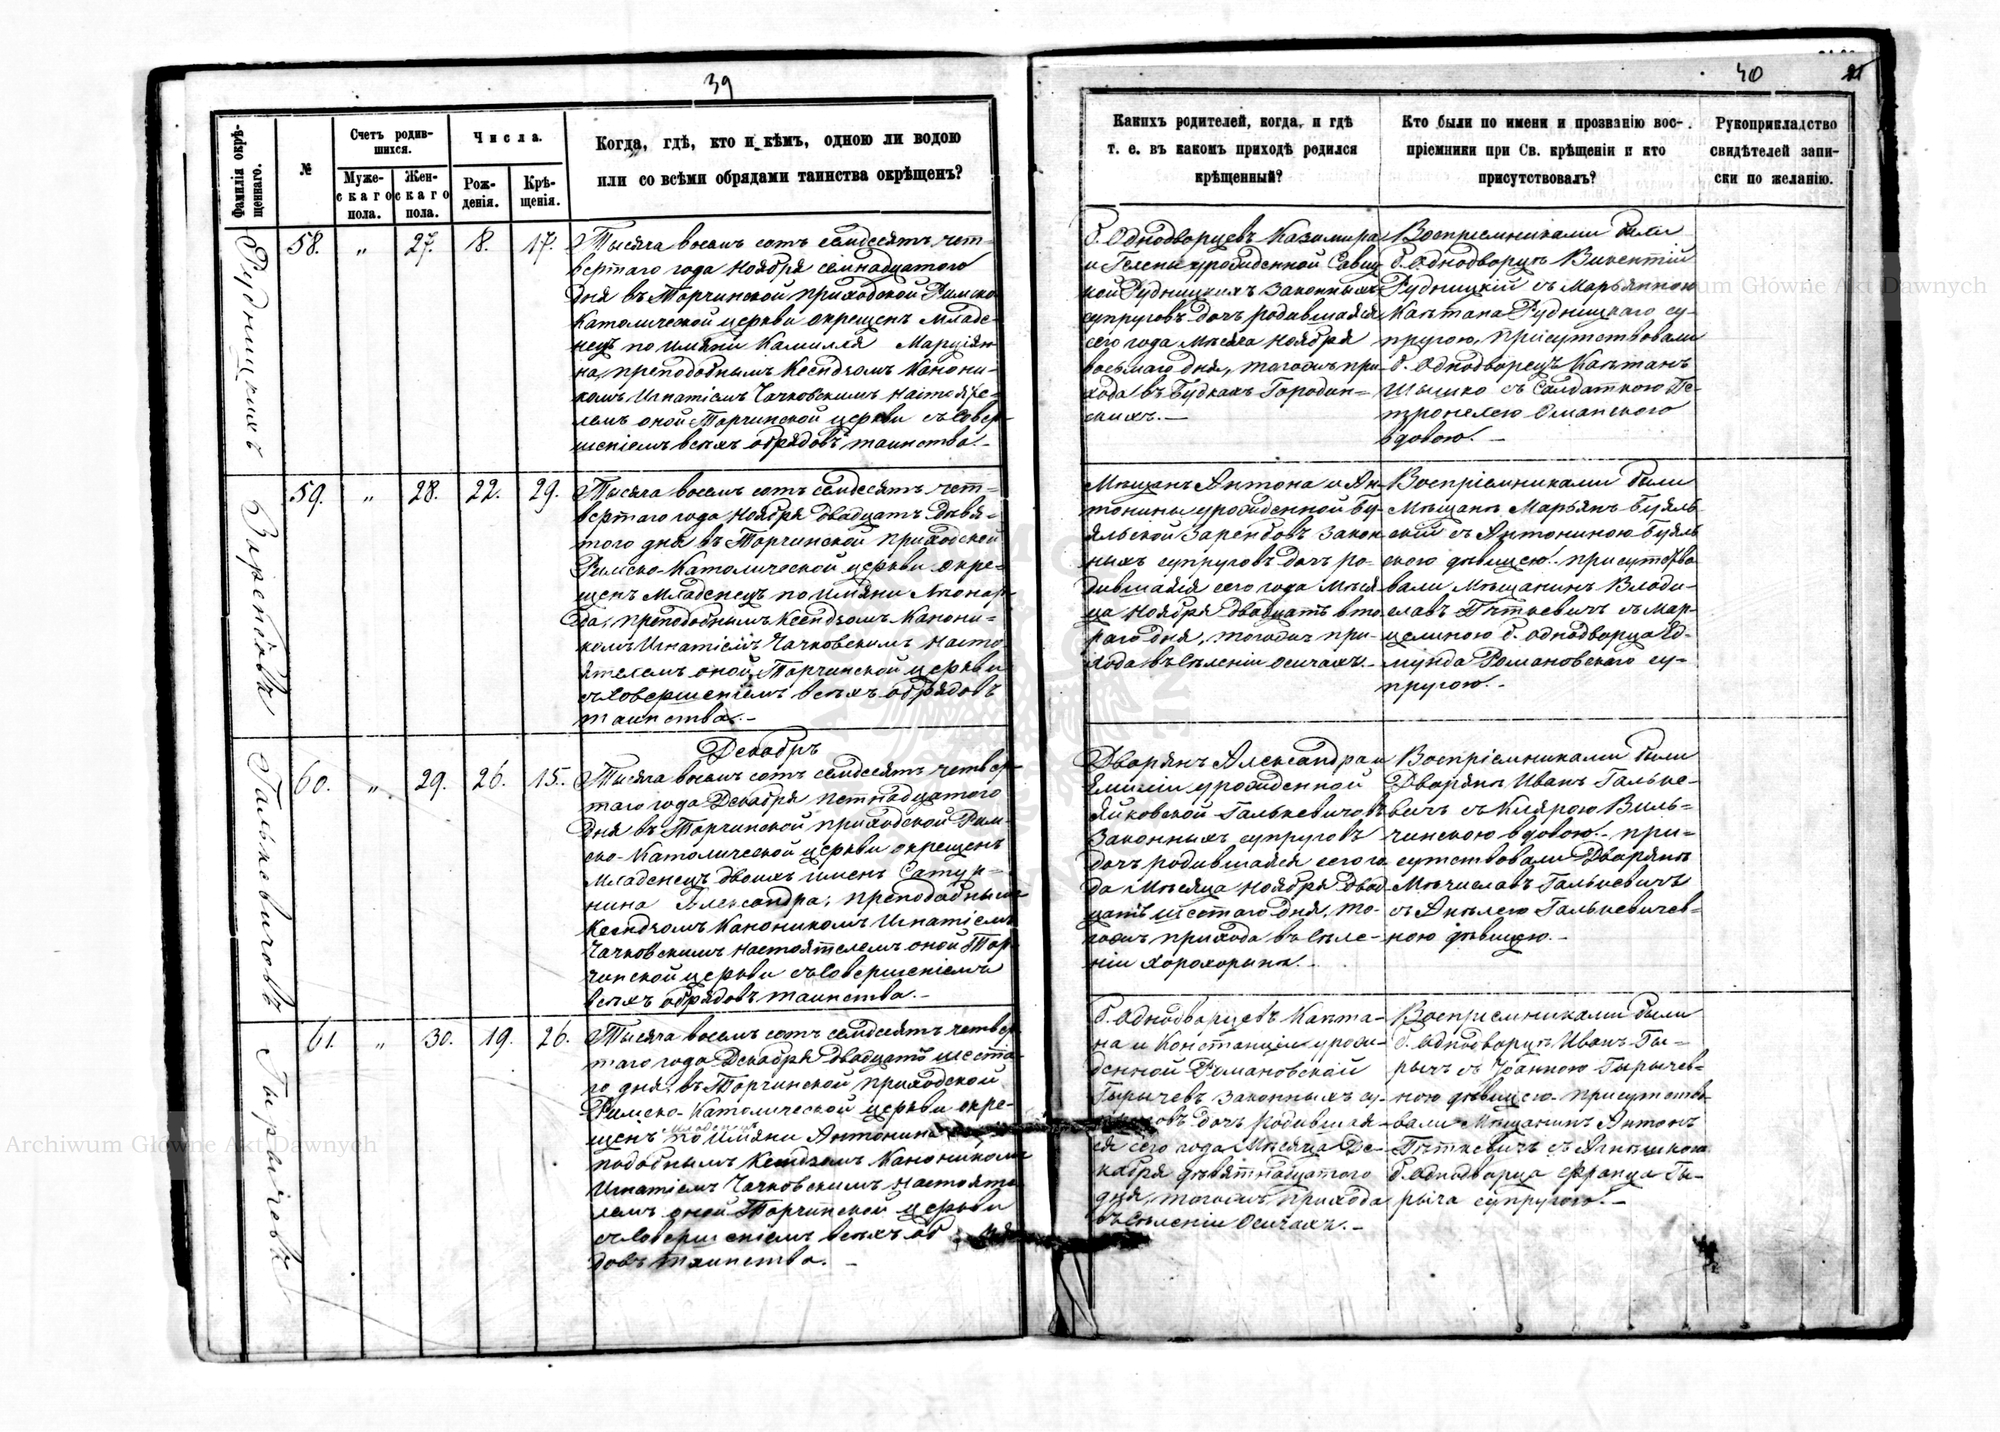 39
Фамилія окрѣ-
щеннаго.
№
Счетъ родив-
шихся.
Муже-
скаго
пола.
Жен-
скаго
пола.
Числа.
Рож-
денія.
Крѣ-
щенія.
Когда, гдѣ, кто и кѣмъ, одною ли водою
или со всѣми обрядами таинства окрѣщенъ?
Рудницкихъ
58. „ 27. 8. 17.
Тысяча восемь сотъ семдесятъ чет-
вертаго года Ноября семнадцатого
дня въ Торчинской приходской Римско
Католической церкви окрещенъ Младе-
нецъ по имяни Камилля Марціян-
на, преподобнымъ Ксендзомъ Канони-
комъ Игнатіемъ Чачковскимъ Настояте-
лемъ оной Торчинской церкви съ Совер-
шеніемъ всехъ обрядовъ таинства.
Зарембовъ
59. „ 28. 22. 29.
Тысяча восемь сотъ семдесятъ чет-
вертаго года Ноября двадцать девя-
того дня въ Торчинской приходской
Римско-Католической церкви окре-
щенъ Младенецъ по имяни Леонар-
да, преподобнымъ Ксендзомъ Канони-
комъ Игнатіемъ Чачковскимъ Насто-
ятелемъ оной Торчинской церкви
съ Совершеніемъ всехъ обрядовъ
таинства.-
Декабрь
Галькевичовъ
60. „ 29. 26. 15.
Тысяча восемь сотъ семдесятъ четвер-
таго года Декабря петнадцатого
дня въ Торчинской приходской Рим-
ско-Католической церкви окрещенъ
Младенецъ двоихъ именъ Сатур-
нина Александра, преподобнымъ
Ксендзомъ Каноникомъ Игнатіемъ
Чачковскимъ Настоятелемъ оной Тор-
чинской церкви съ Совершеніемъ
всехъ обрядовъ таинства.-
Гырычовъ
61. „ 30. 19. 26.
Тысяча восемь сотъ семдесятъ четвер-
таго года Декабря двадцать шеста-
го дня, въ Торчинской приходской
Римско-Католической церкви окре-
щенъ младенецъ по имяни Антонина
подобнымъ Ксендзомъ Каноникомъ
Игнатіемъ Чачковскимъ Настояте
лемъ оной Торчинской церкви
съ Совершеніемъ всехъ об
довъ таинства.-
40
Какихъ родителей, когда, и гдѣ
т. е. въ какомъ приходѣ родился
крѣщенный?
Кто были по имени и прозванію вос-
пріемники при Св. крѣщеніи и кто
присутствовалъ?
Рукоприкладство
свидѣтелей запи-
ски по желанію.
б. Однодворцевъ Казимира
и Гелены урожденной Савиц
кой Рудницкихъ законныхъ
супруговъ дочь родившаяся
сего года Мѣсяца Ноября
восьмаго дня, тогожъ при
хода въ Будкахъ Городин-
скихъ.-
Воспріемниками были
б. Однодворцъ Викентій
Рудницкій съ Марьянною
Каетана Рудницкаго су-
пругою, присутствовали
б. Однодворецъ Каетанъ
Шышко съ Солдаткою Пе-
тронелею Оманского
вдовою.-
Мѣщанъ Антона и Ан-
тонины урожденной Бу-
яльской Зарембовъ закон
ныхъ супруговъ дочь ро-
дившаяся сего года Мѣся
ца Ноября двадцать вто-
раго дня, тогожъ при-
хода въ Сѣленіи Осичахъ.-
Воспріемниками были
Мѣщанъ Марьянъ Буяль-
скій съ Антониною Буяль
скою дѣвицею. присутство
вали Мѣщанинъ Влади-
славъ Петкевичъ съ Мар-
целиною б. однодворца Эд-
мунда Романовского су-
пругою.-
Дворянъ Александра и
Емиліи урожденной
Яйковской Галькевичовъ
законныхъ супруговъ
дочь родившаяся сего го
да Мѣсяца Ноября двад
цать шестаго дня, то-
гожъ прихода въ Сѣле-
ніи Хорохоринѣ.
Воспріемниками были
Дворянъ Иванъ Гальке-
вичъ съ Клярою Виль-
чинскою вдовою.- при-
сутствовали Дворянъ
Мечиславъ Галькевичъ
съ Анелею Галькевичев-
ною дѣвицею.-
б. Однодворцевъ Каета-
на и Констанціи урож-
денной Романовской
Гырычевъ законныхъ су-
говъ дочь родившая-
ся сего года Мѣсяца Де-
кабря дѣвятнадцатого
дня, тогожъ прихода
въ Сѣленіи Осичахъ.-
Воспріемниками были
б. Однодворцъ Иванъ Гы-
рычъ съ Іоанною Гырычев-
ною дѣвицею. присутство-
вали Мѣщанинъ Антонъ
Петкевичъ съ
б. однодворца Франца Гы-
рыча супругою.-
Archiwum Główne Akt Dawnych